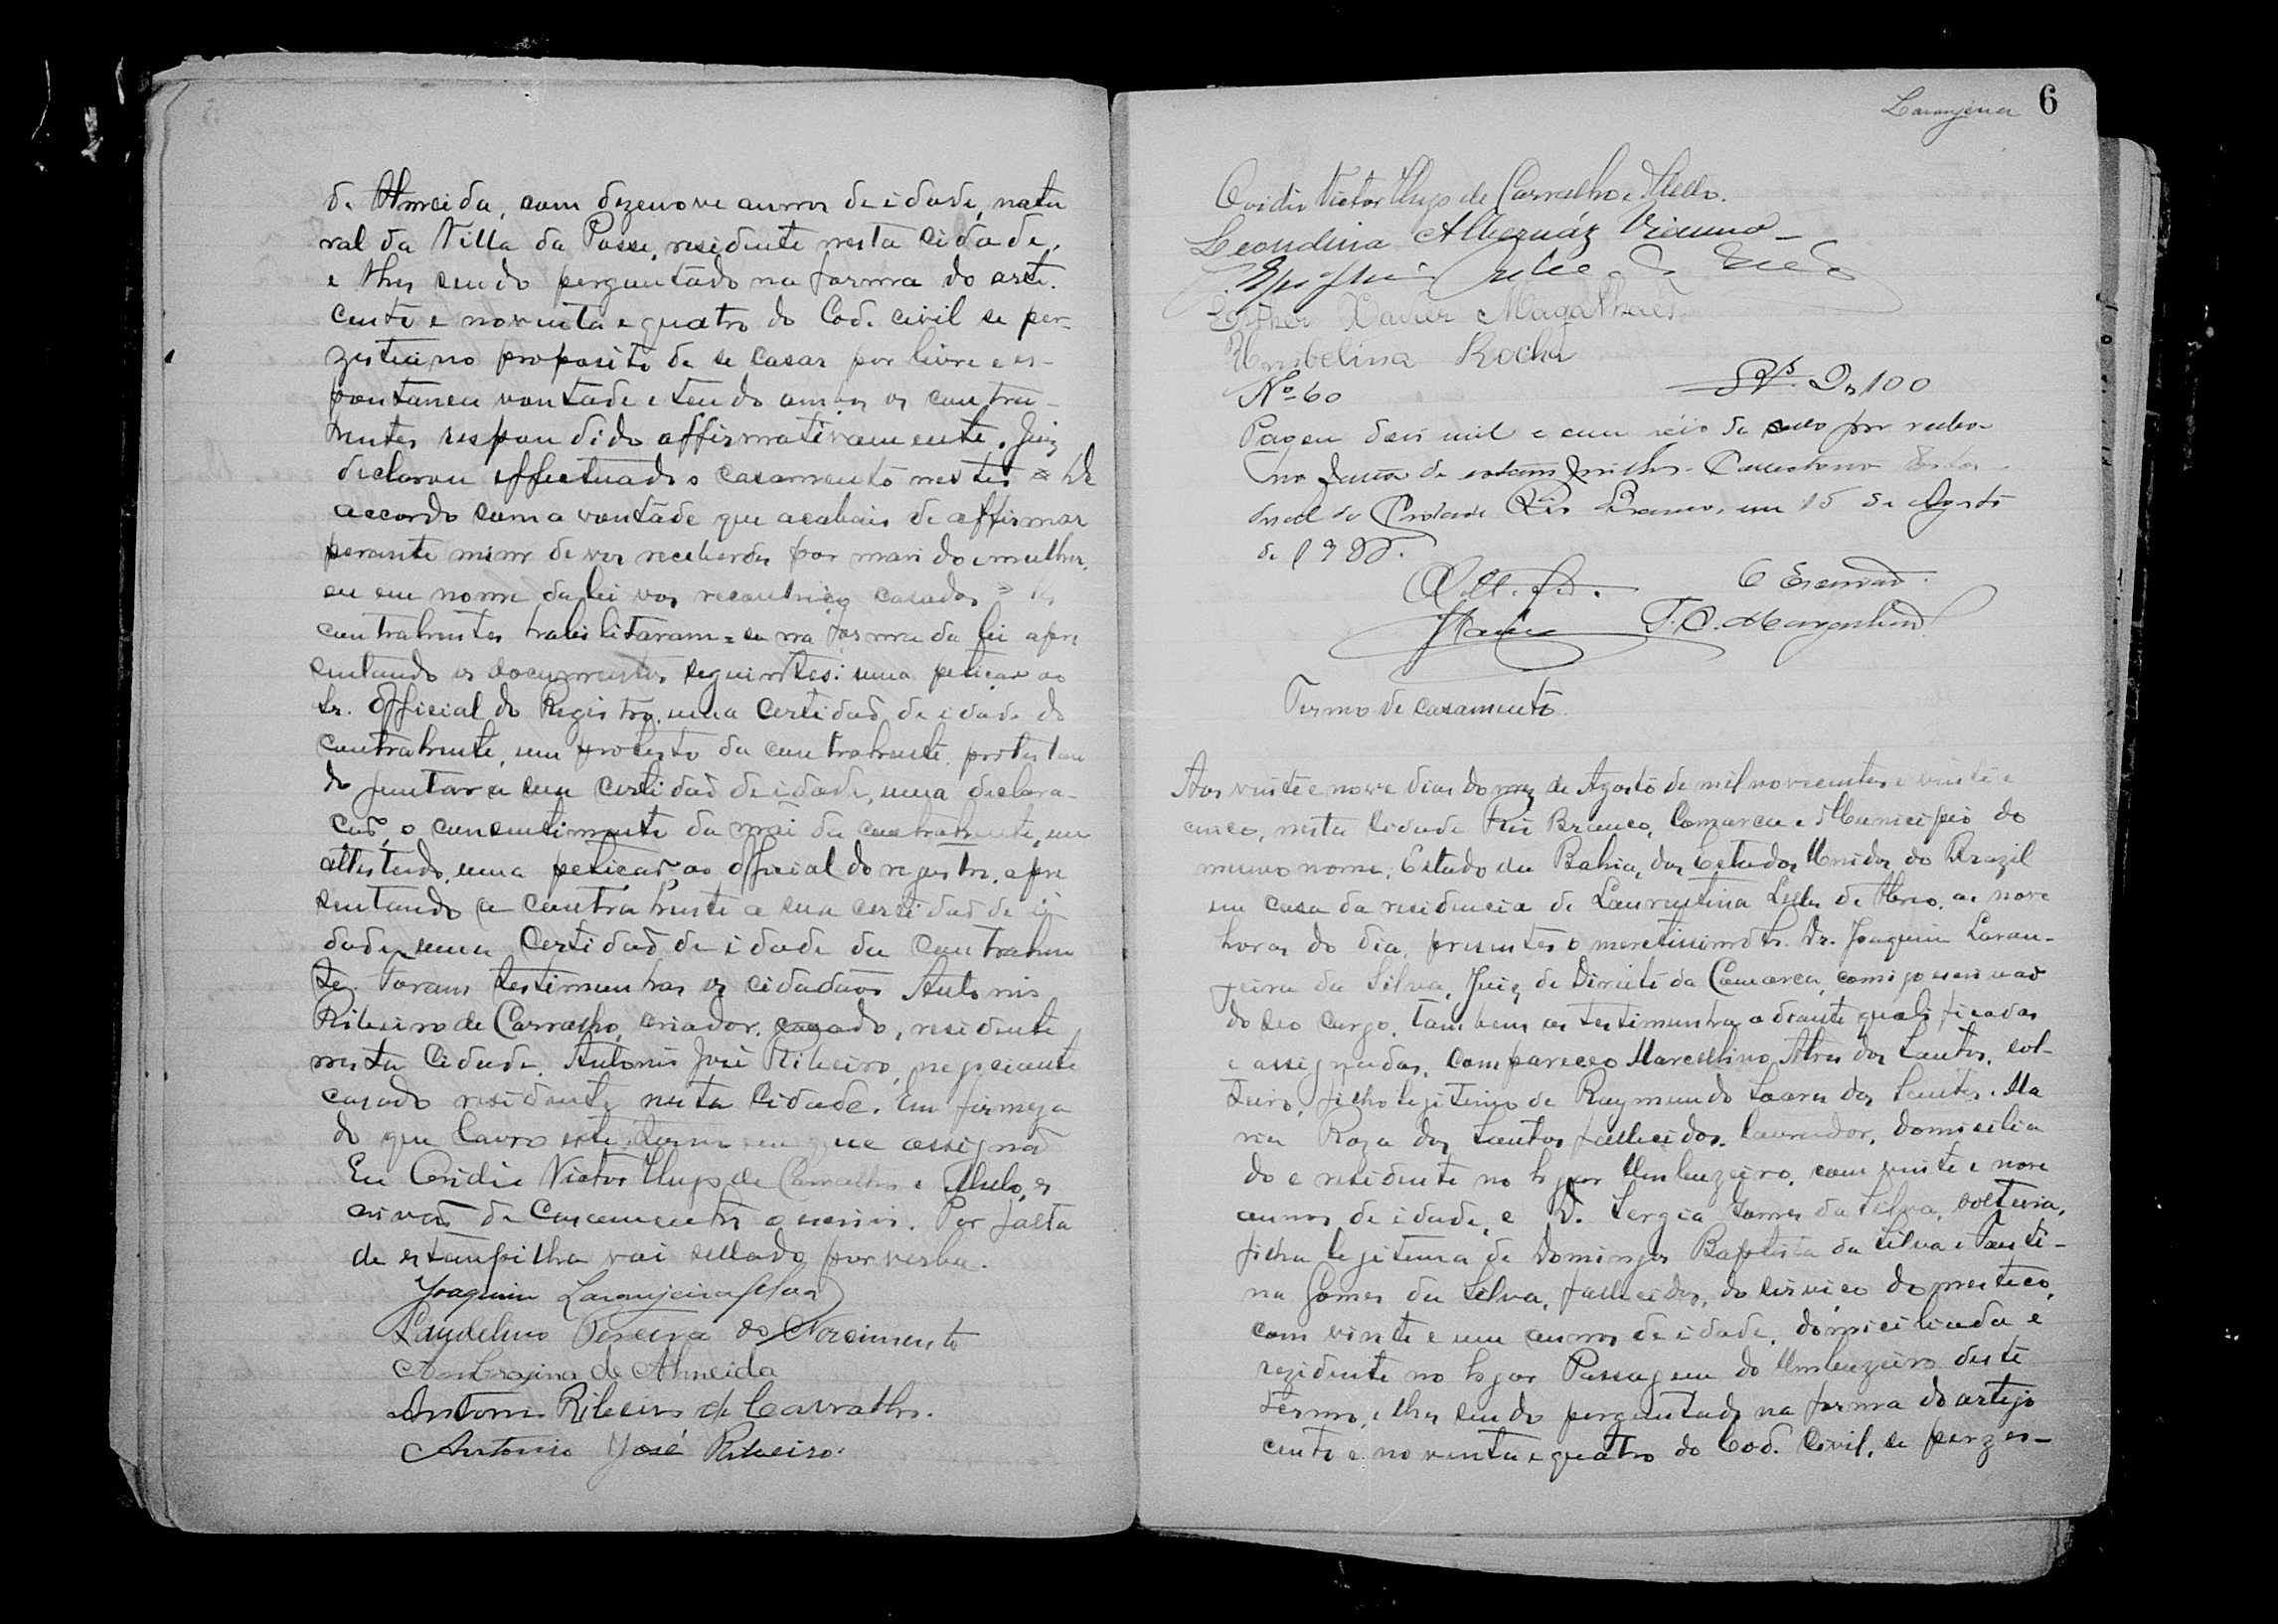 de Almeida, com dezenove annos de idade, natu
ral da Villa da Posse, residente nesta cidade,
e lhes sendo perguntado na forma do arti.
cento e noventa e quatro do Cod. civil se per-
zistia no proposito de se casar por livre e es-
pontanea vontade e tendo ambos os contra-
hentes respondido affirmativamente. Juiz
declarou effectuado o casamento nestes = De
accordo com a vontade que acabais de affirmar
perante mim de vos receberdes por marido e mulher,
eu em nome da lei vos reconheço casados = Os
contrahentes habilitaram-se na forma da lei apre
sentando os documentos seguintes: uma petição ao
Sr. Official do Registro, uma certidaõ de idade do
contrahente, um protesto da contrahente, protestan
do juntar a sua certidaõ de idade, uma declara-
çaõ, o consentimento da mãi da contrahente, um
attestado, uma petiçaõ ao official do registro, apre
sentando a contrahente a sua certidaõ de i
dade, uma certidaõ de idade da contrahen
te. Foram testimunhas os cidadãos Antonio
Ribeiro de Carvalho, criador, cazado, residente
nesta cidade, Antonio José Ribeiro, negociante
casado residente nesta cidade. Em firmeza
do que lavro este termo em que assignaõ
Eu Ovidio Victor Hugo de Carvalho e Mello, es
crivaõ de casamentos o escrivi. Por falta
de estampilha vai sellado por verba.
Joaquim Laranjeira da Silva
Laudelino Pereira do Nascimento
Ambrosina de Almeida
Antonio Ribeiro de Carvalho.
Antonio José Ribeiro.
Laranjeira 6
Ovidio Victor Hugo de Carvalho e Mello.
Leondina Albernáz Vianna
Esther Xavier Magalhaes
Umbelina Rocha
Nº 60 Rs. 2$100
Pagou dois mil e cem réis de sello por verba
na falta de estampilhas. Collectoria Esta
dual da Cidade Rio Branco, em 15 de Agosto
de 1925.
O Escrivaõ
Termo de casamento
Aos vinte e nove dias do mez de Agosto de mil novecentos e vinte e
cinco, nesta cidade Rio Branco, Comarca e Municipio do
mesmo nome, Estado da Bahia, dos Estados Unidos do Brazil
em casa da residencia de Laurentina as nove
horas do dia, presentes o meretissimo Sr. Dr. Joaquim Laran-
jeira da Silva, Juiz de Direito da Comarca, comigo escrivaõ
do seo cargo, tambem as testimunhas adiante qualificadas
e assignadas, compareceo Marcellino Alves dos Santos, sol-
teiro, filho legitimo de Raymundo Soares dos Santos e Ma
ria Roza dos Santos, fallecidos, lavrador, domicilia
do e residente no logar Umbuzeiro, com vinte e nove
annos de idade, e D. Sergia Gomes da Silva, solteira,
filha legitima de Domingos Baptista da Silva e Fausti-
na Gomes da Silva, fallecidos, do serviço domestico,
com vinte e um annos de idade, domiciliada e
rezidente no logar Passagem do Umbuzeiro deste
termo, e lhes sendo perguntado na forma do artigo
cento e noventa e quatro do Cod. Civil, se perzes-